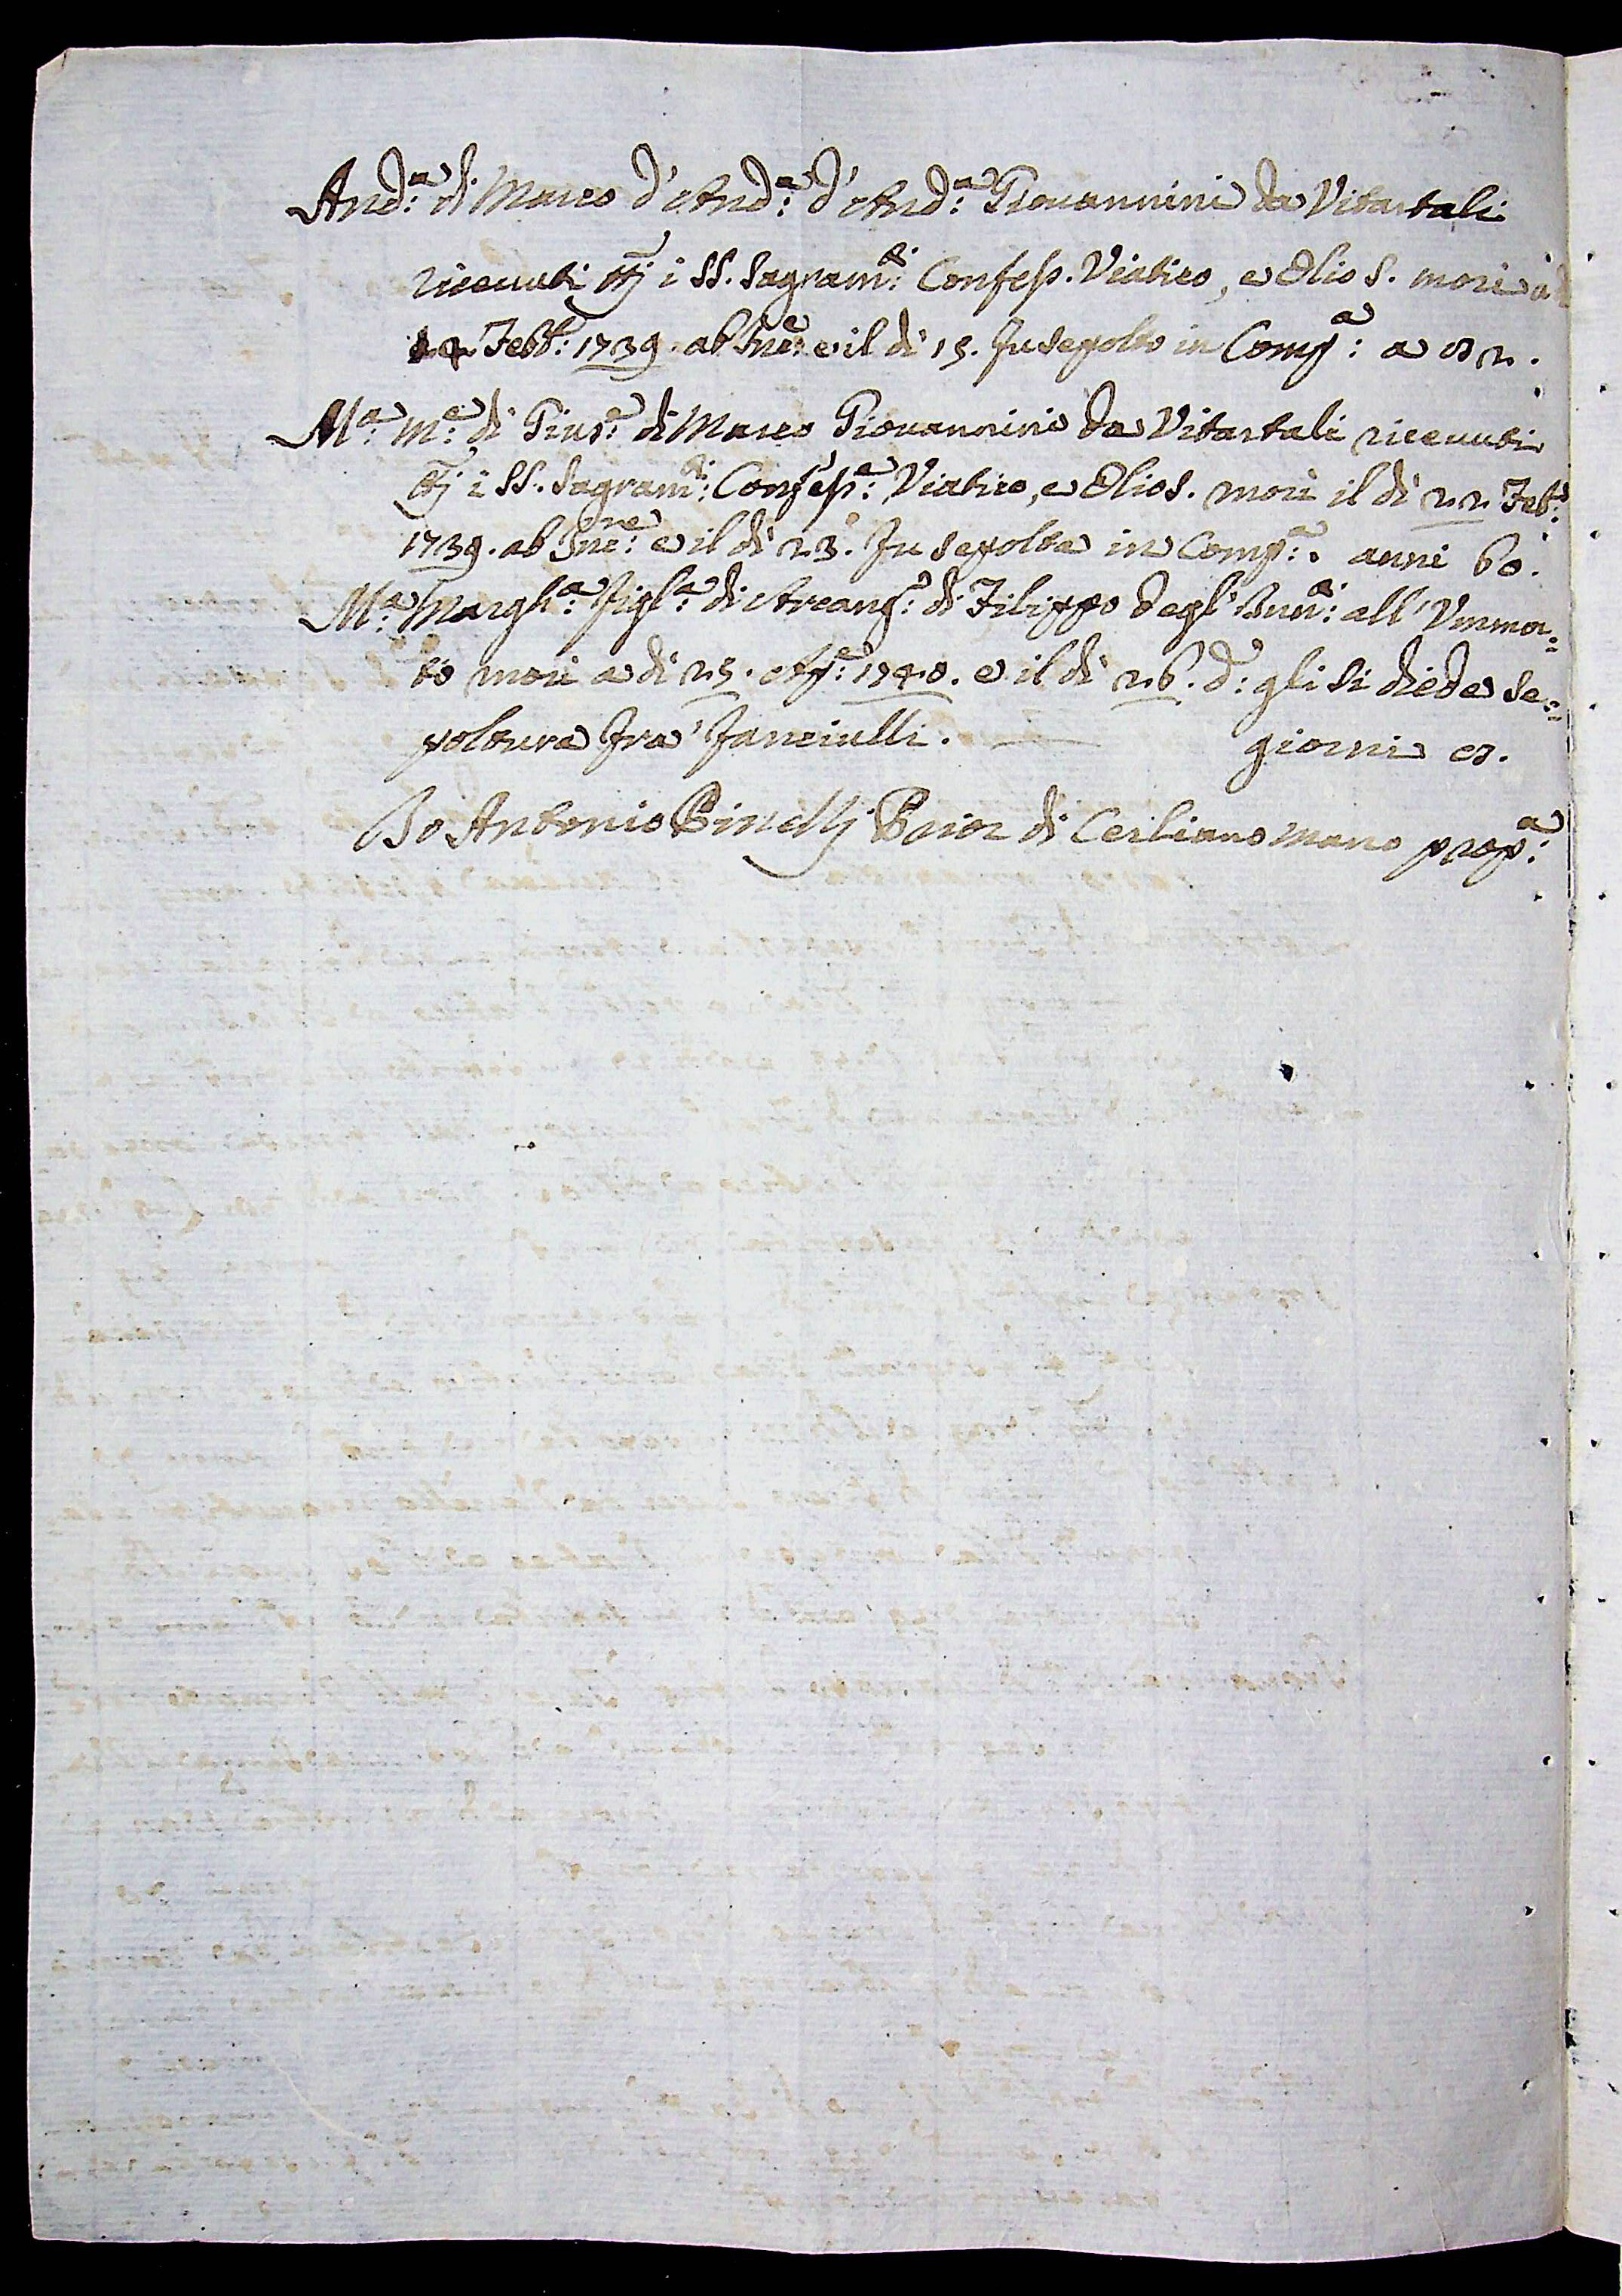 And.ª: di Marco d'And.ª: d'And.ª: Giovannini da Vitartali
ricevuti ttj i SS. Sagram.ti: Confess. Viatico, e Olio S. morì a dì
14 Febb.: 1739. ab Inc.e: e il dì 15. fu sepolto in Comp.ª: a 82.
M.ª: M.e: di Gius.e: di Marco Giovannini da Vitartali ricevuti
ttj i SS. Sagram.ti: Confess.e: Viatico, e Olio S. morì il dì 22 Feb.:
1739. ab Inc.ne: e il dì 23. fu sepolta in Comp.ª: anni 60.
M.ª: Margh.ª: figl.ª: di Arcang.o: di Filippo degl' Inn.ti: all' Vmma=
to morì a dì 25. Ap.e: 1740. e il dì 26. d.o: gli si diede se=
poltura fra' fanciulli. — giorni 8.
Io Antonio Pinellj Prior di Cerliano mano prop.ª: